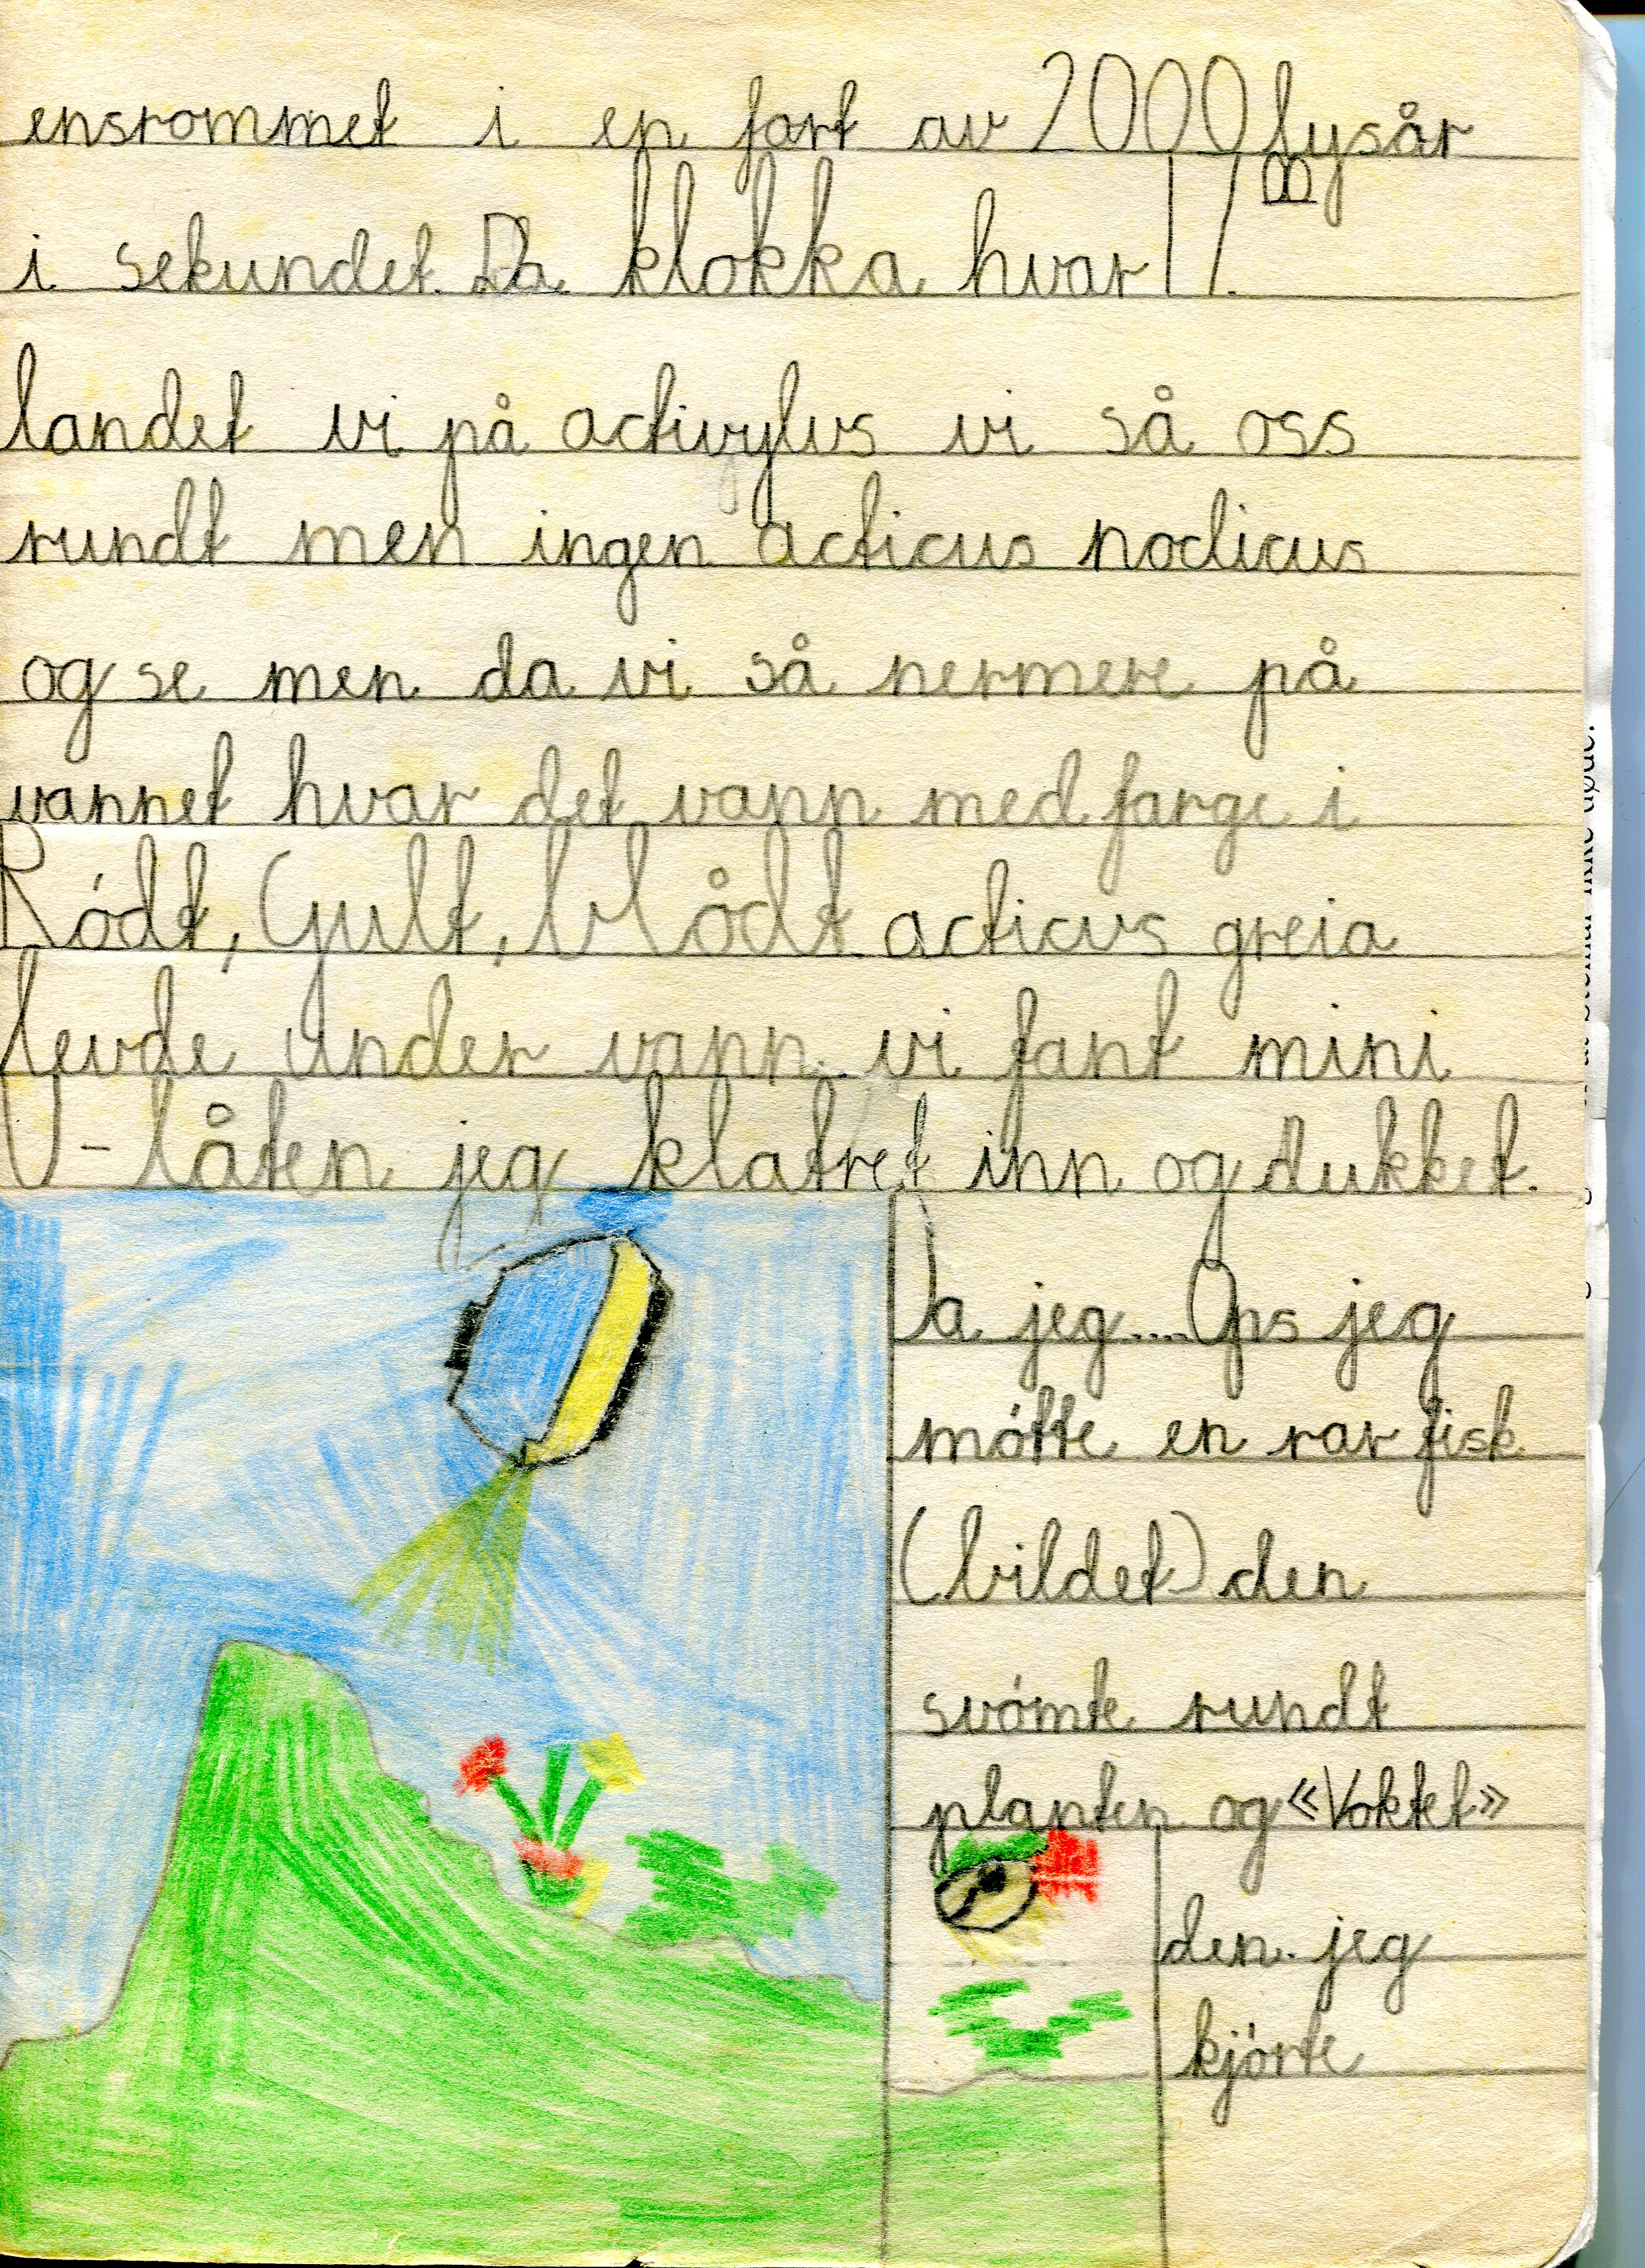 ensrommet i en fart av 2000 lysår
i sekundet. Da klokka hvar 17.00
landet vi på activylus vi så oss
rundt men ingen acticus nodicus
og se men da vi så nermere på
vannet hvar det vann med farge i
Ródt, Gult, blådt acticus greia
levde under vann. vi fant mini
U-låten jeg klatret inn og dukket.
Da jeg.... Ops jeg
mótte en rar fisk
(bildet) den
svómte rundt
planten og «Voktet»
den. jeg
kjórte